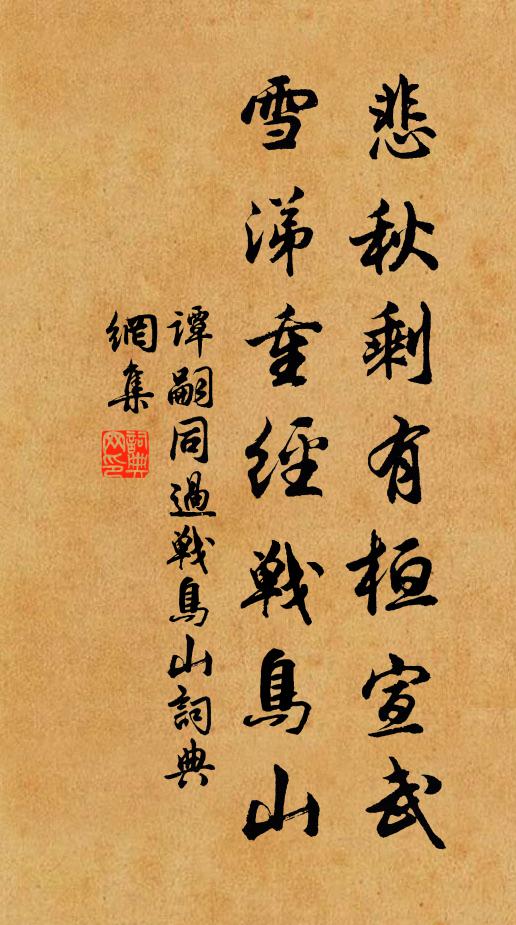 悲秋剩有桓宣武
雪涕重經戰鳥山
譚嗣同過戰鳥山詞典
網集
詞典
网印